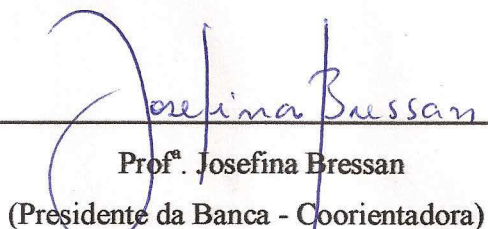 Josefina Bressan
Profª. Josefina Bressan
(Presidente da Banca - Coorientadora)